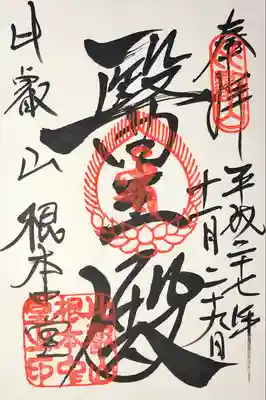 奉拝
平成二十七年
十一月二十九日
醫王殿
比叡山
根本中堂
比叡山
根本中
堂之印